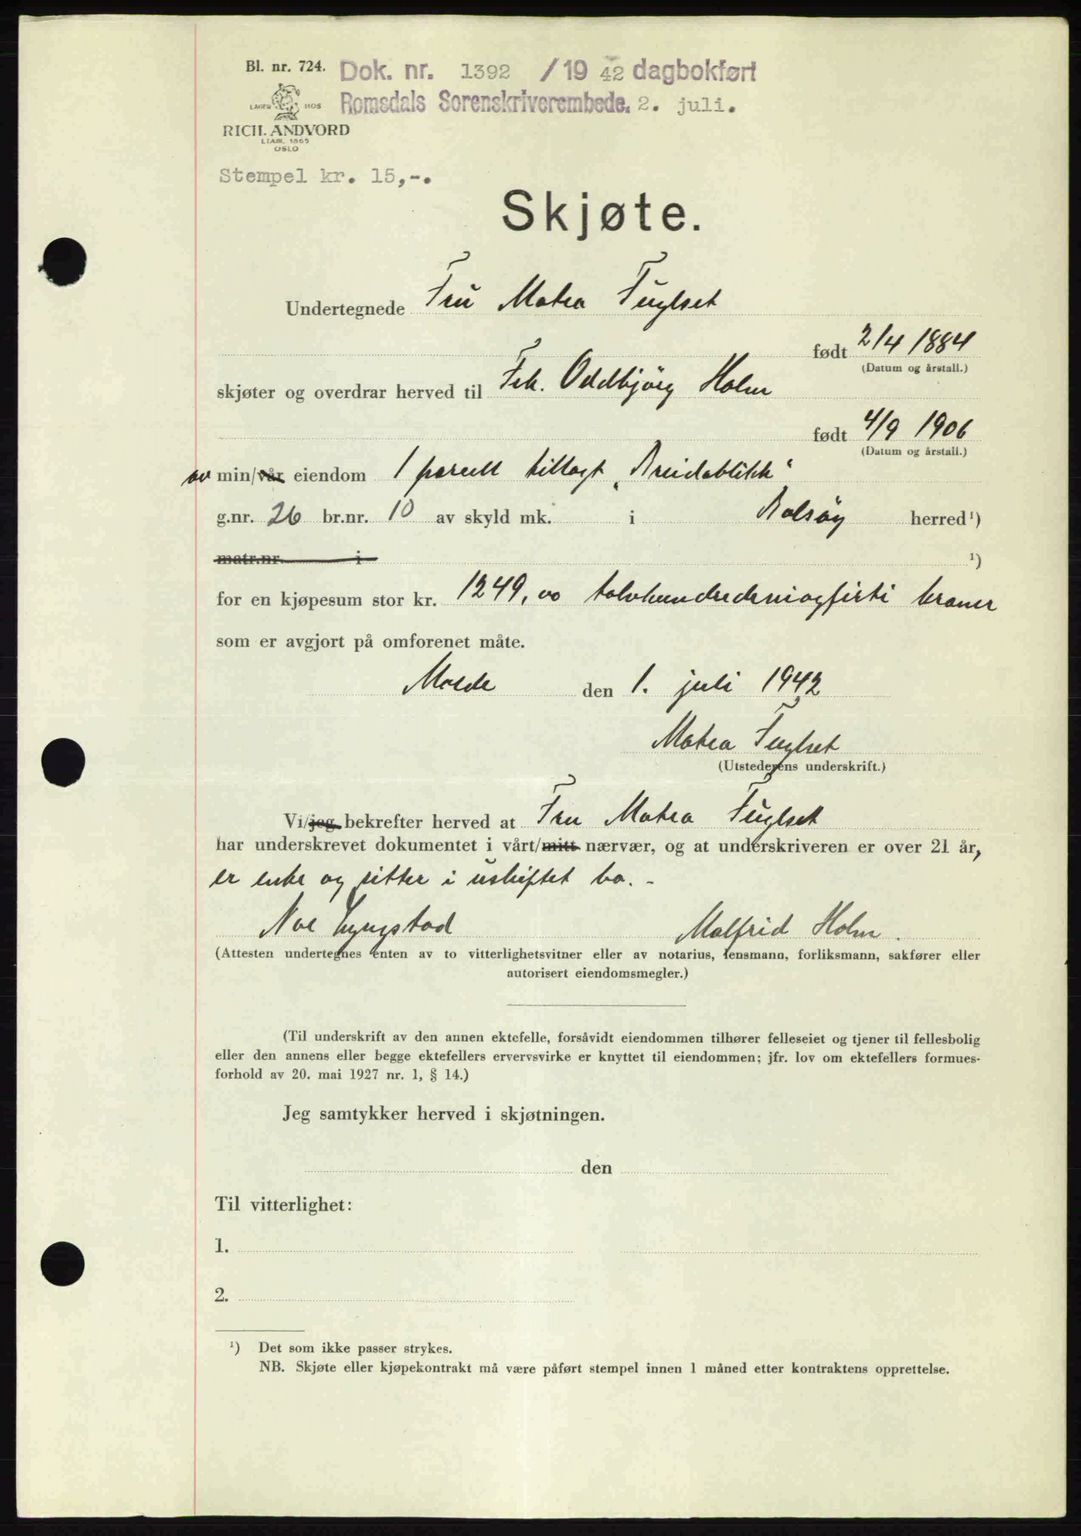 Bl. nr. 724. Dok. nr. 1392 /1942 dagbokført
LAGER HOS Romsdals Sorenskriverembede. 2. juli.
RICH. ANDVORD
ETABL. 1865
OSLO
Stempel kr. 15,-.
Skjøte.
Undertegnede Fru Matea Fuglset
født 2/4 1884
(Datum og årstall.)
skjøter og overdrar herved til Frk. Oddbjörg Holm
født 4/9 1906
(Datum og årstall.)
av min/vår eiendom 1 parcell tillagt „Breidablikk“
g.nr. 26 br.nr. 10 av skyld mk. i Bolsöy herred¹)
matr.nr. i ¹)
for en kjøpesum stor kr. 1249,00 tolvhundredeniogfirti kroner
som er avgjort på omforenet måte.
Molde den 1. juli 1942
Matea Fuglset
(Utstederens underskrift.)
Vi/jeg bekrefter herved at Fru Matea Fuglset
har underskrevet dokumentet i vårt/mitt nærvær, og at underskriveren er over 21 år,
er enke og sitter i uskiftet bo. -
Lyngstad Malfrid Holm.
(Attesten undertegnes enten av to vitterlighetsvitner eller av notarius, lensmann, forliksmann, sakfører eller
autorisert eiendomsmegler.)
(Til underskrift av den annen ektefelle, forsåvidt eiendommen tilhører felleseiet og tjener til fellesbolig
eller den annens eller begge ektefellers ervervsvirke er knyttet til eiendommen; jfr. lov om ektefellers formues-
forhold av 20. mai 1927 nr. 1, § 14.)
Jeg samtykker herved i skjøtningen.
den
Til vitterlighet:
1.
2.
¹) Det som ikke passer strykes.
NB. Skjøte eller kjøpekontrakt må være påført stempel innen 1 måned etter kontraktens opprettelse.